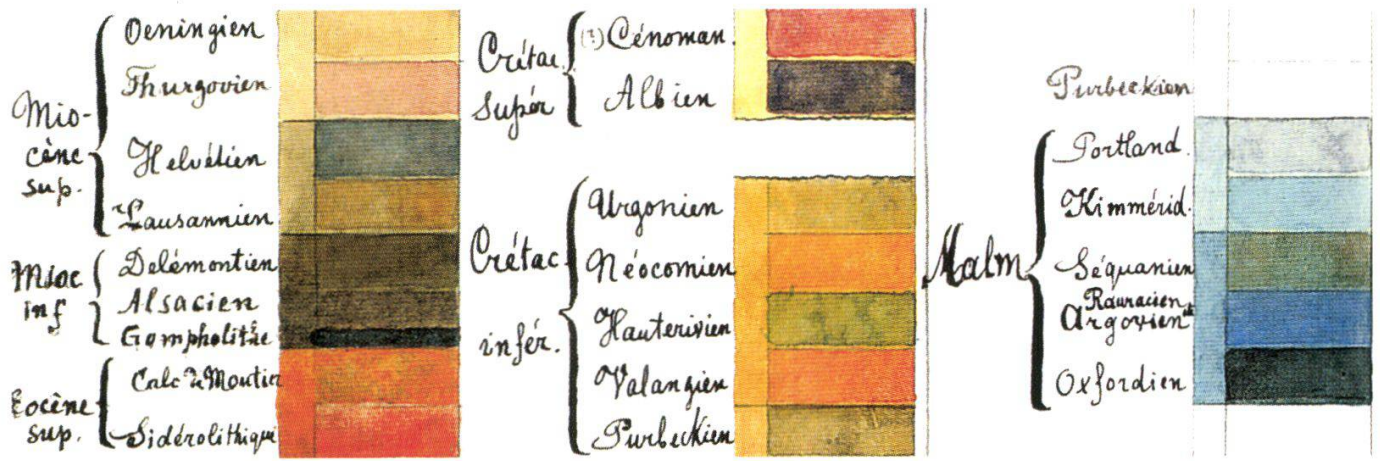 Oeningien
Thurgovien
Mio-
cène
sup.
Helvétien
Lausannien
Mioc
inf
Delémontien
Alsacien
Gompholithe
Eocène
sup.
Calc de Moutier
Sidérolithique
Crétac
supér
(?) Cénoman.
Albien
Crétac
infér.
Urgonien
Néocomien
Hauterivien
Valangien
Purbeckien
Purbeckien
Malm
Portland.
Kimmérid.
Séquanien
Rauracien
Argovien
Oxfordien